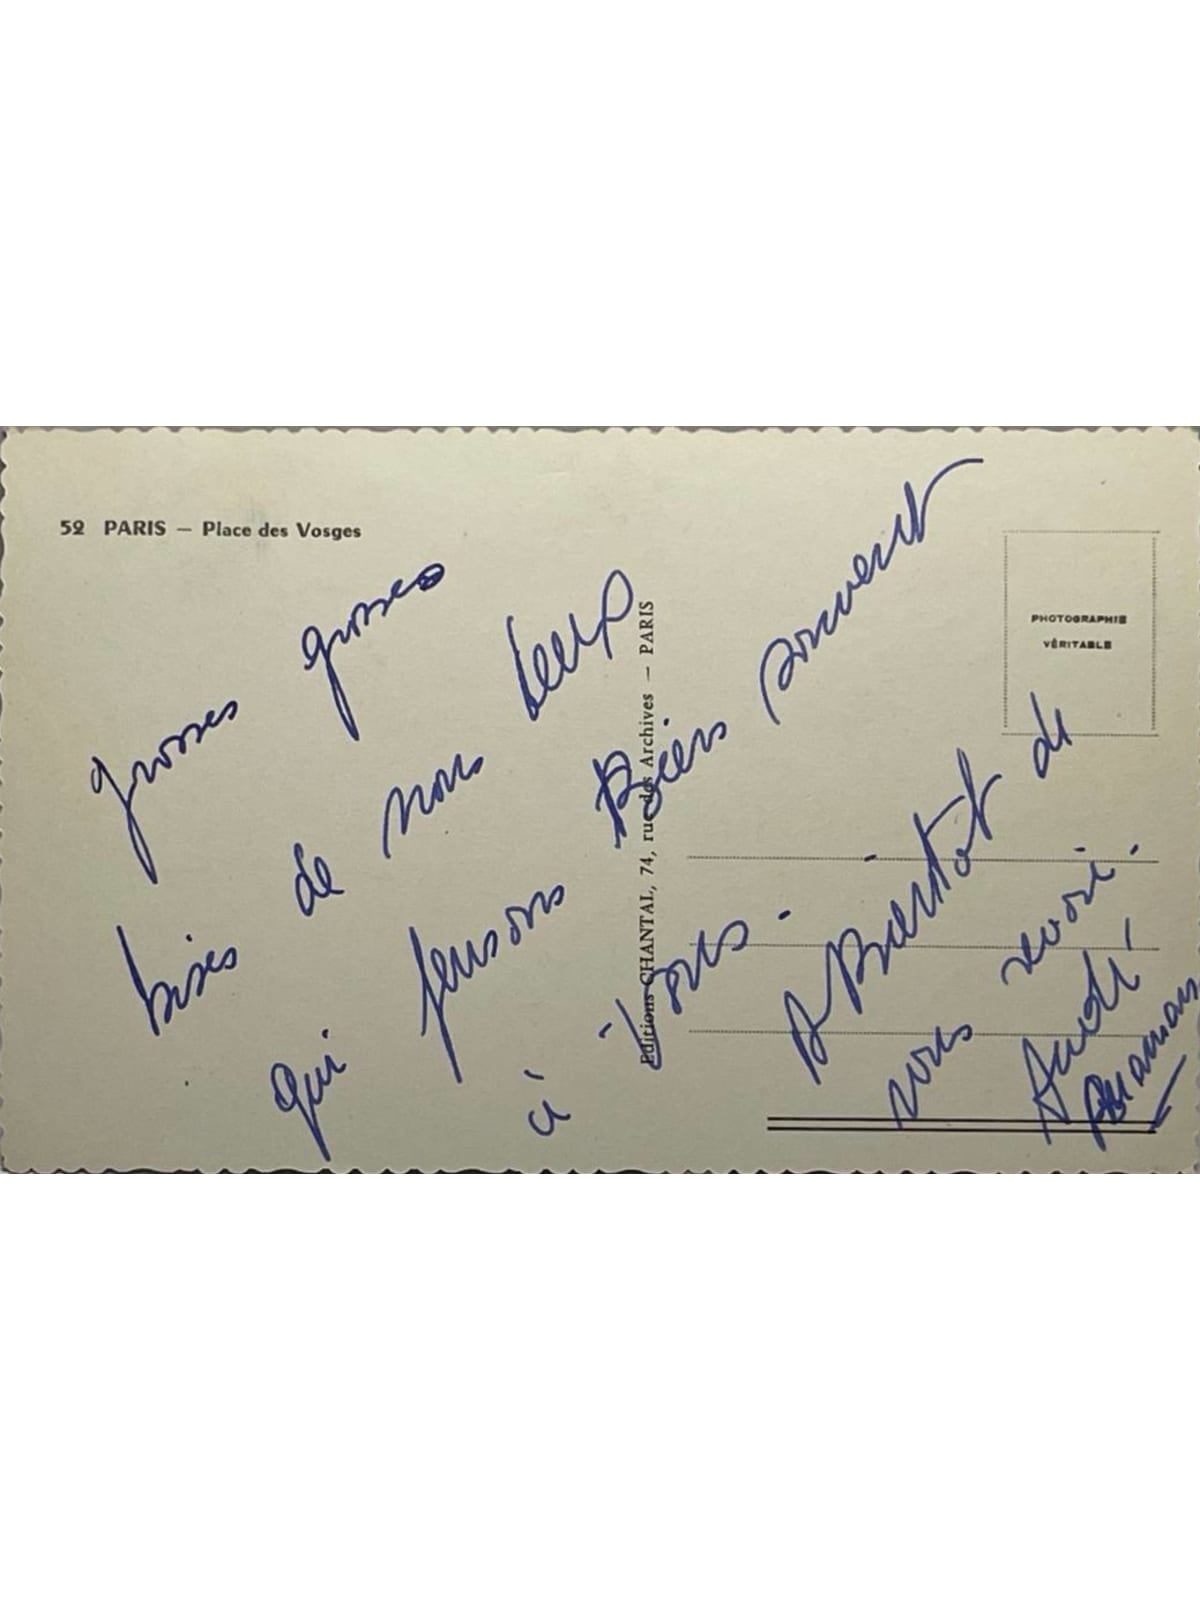 52 PARIS — Place des Vosges
grosses grosses
bises de nous deux
qui pensons Bien souvent
à vous.
A Bientôt de
vous revoir.
Editions CHANTAL, 74, rue des Archives — PARIS
PHOTOGRAPHIE
VÉRITABLE